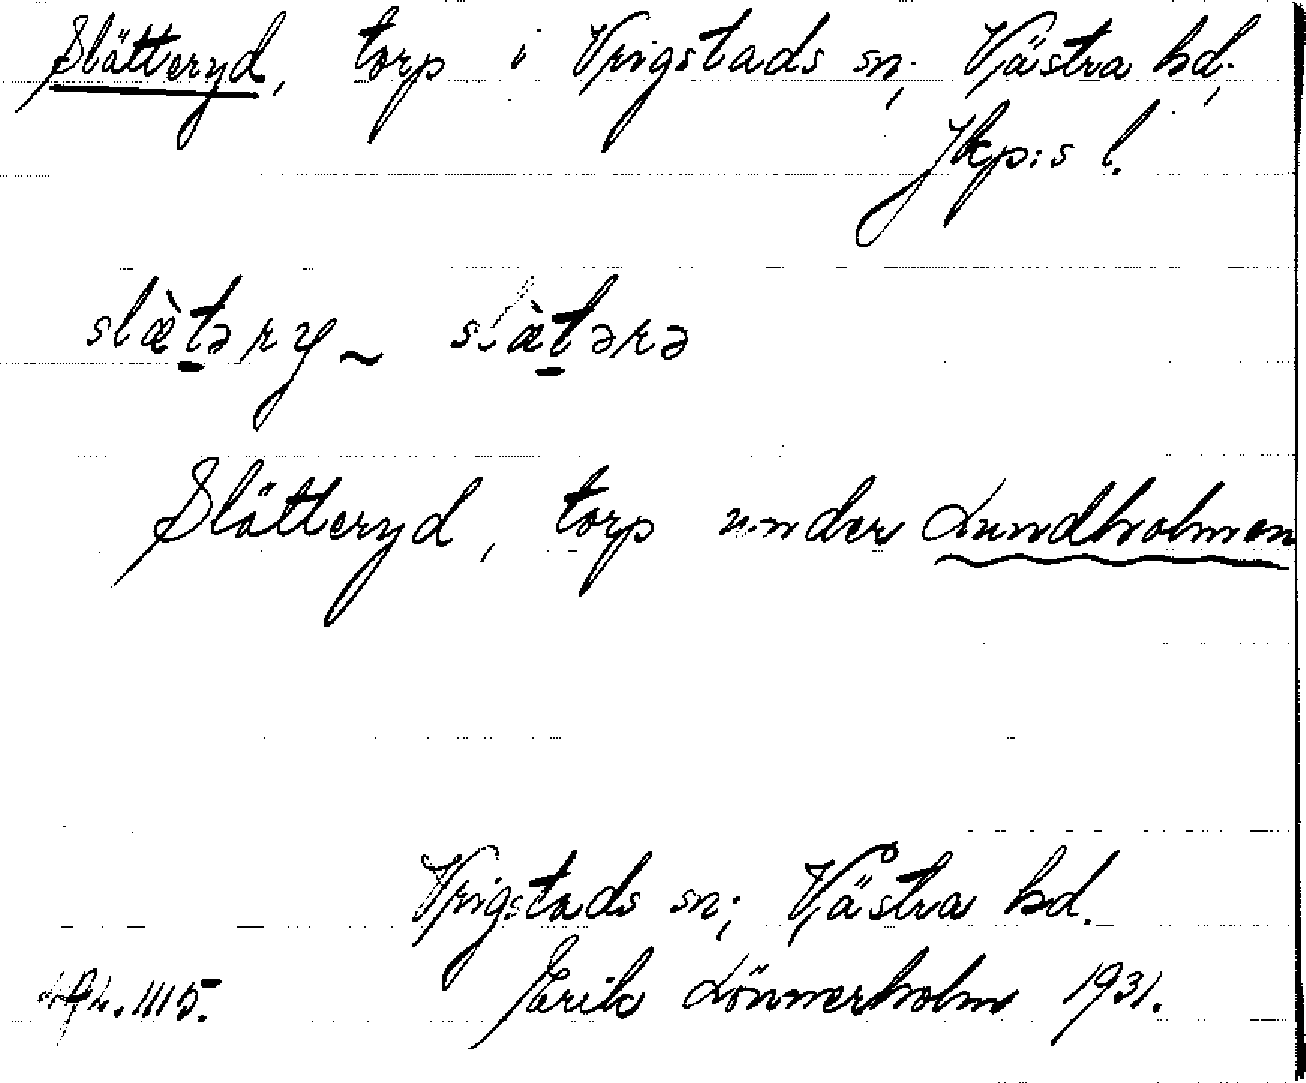 Slätteryd, torp i Vrigstads sn; Västra hd;
Jkp:s l.
slæ̀t̲əry ~ slæ̀t̲ərə
Slätteryd, torp under Lundholmen
Vrigstads sn; Västra hd.
Erik Lönnerholm 1931.
1115.